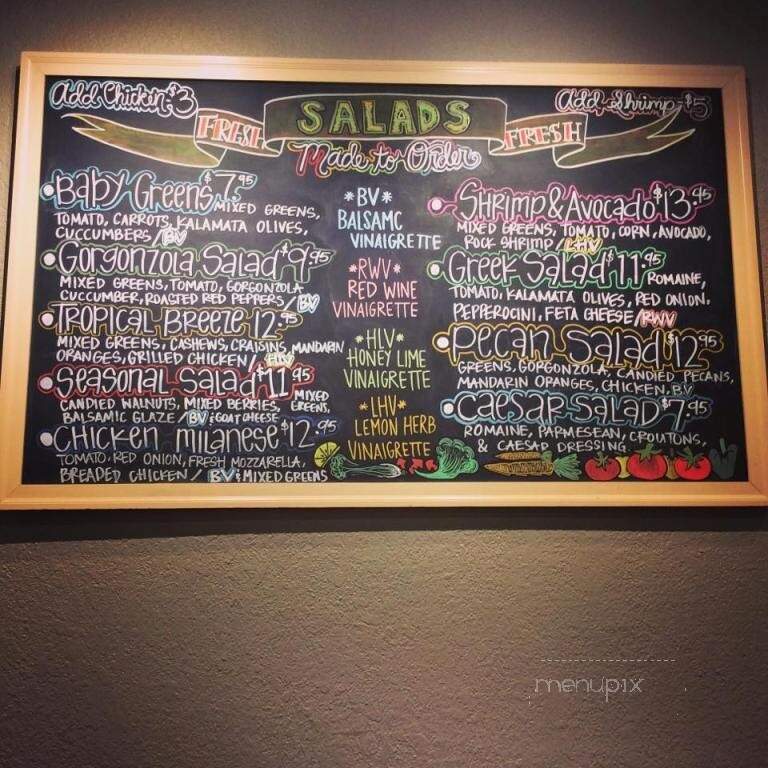 Add Chicken $3
Add Shrimp $5
FRESH SALADS FRESH
Made to Order
Baby Greens $7.95
MIXED GREENS,
TOMATO, CARROTS, KALAMATA OLIVES,
CUCCUMBERS / BV
Gorgonzola Salad $9.95
MIXED GREENS, TOMATO, GORGONZOLA
CUCCUMBER, ROASTED RED PEPPERS / BV
Tropical Breeze 12.95
MIXED GREENS, CASHEWS, CRAISINS, MANDARIN
ORANGES, GRILLED CHICKEN / HLV
Seasonal Salad $11.95
MIXED
CANDIED WALNUTS, MIXED BERRIES, GREENS,
BALSAMIC GLAZE / BV & GOAT CHEESE
CHICKEN MILANESE $12.95
TOMATO, RED ONION, FRESH MOZZARELLA,
BREADED CHICKEN / BV & MIXED GREENS
*BV*
BALSAMC
VINAIGRETTE
*RWV*
RED WINE
VINAIGRETTE
*HLV*
HONEY LIME
VINAIGRETTE
*LHV*
LEMON HERB
VINAIGRETTE
Shrimp & Avocado $13.95
MIXED GREENS, TOMATO, CORN, AVOCADO,
ROCK SHRIMP / LHV
Greek Salad $11.95
ROMAINE,
TOMATO, KALAMATA OLIVES, RED ONION,
PEPPEROCINI, FETA CHEESE / RWV
Pecan Salad $12.95
GREENS, GORGONZOLA, CANDIED PECANS,
MANDARIN ORANGES, CHICKEN, BV
CAESAR SALAD $7.95
ROMAINE, PARMESEAN, CROUTONS,
& CAESAR DRESSING
menupix